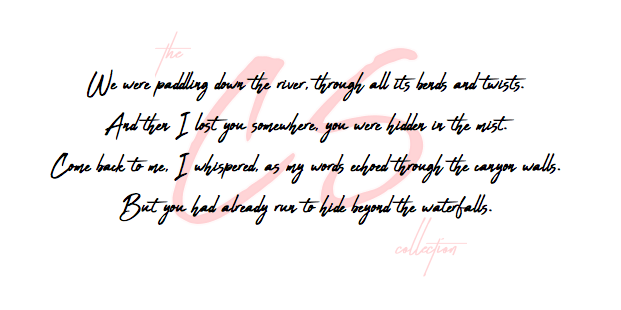 the
CS
We were paddling down the river, through all its bends and twists.
And then I lost you somewhere, you were hidden in the mist.
Come back to me, I whispered, as my words echoed through the canyon walls.
But you had already run to hide beyond the waterfalls.
collection